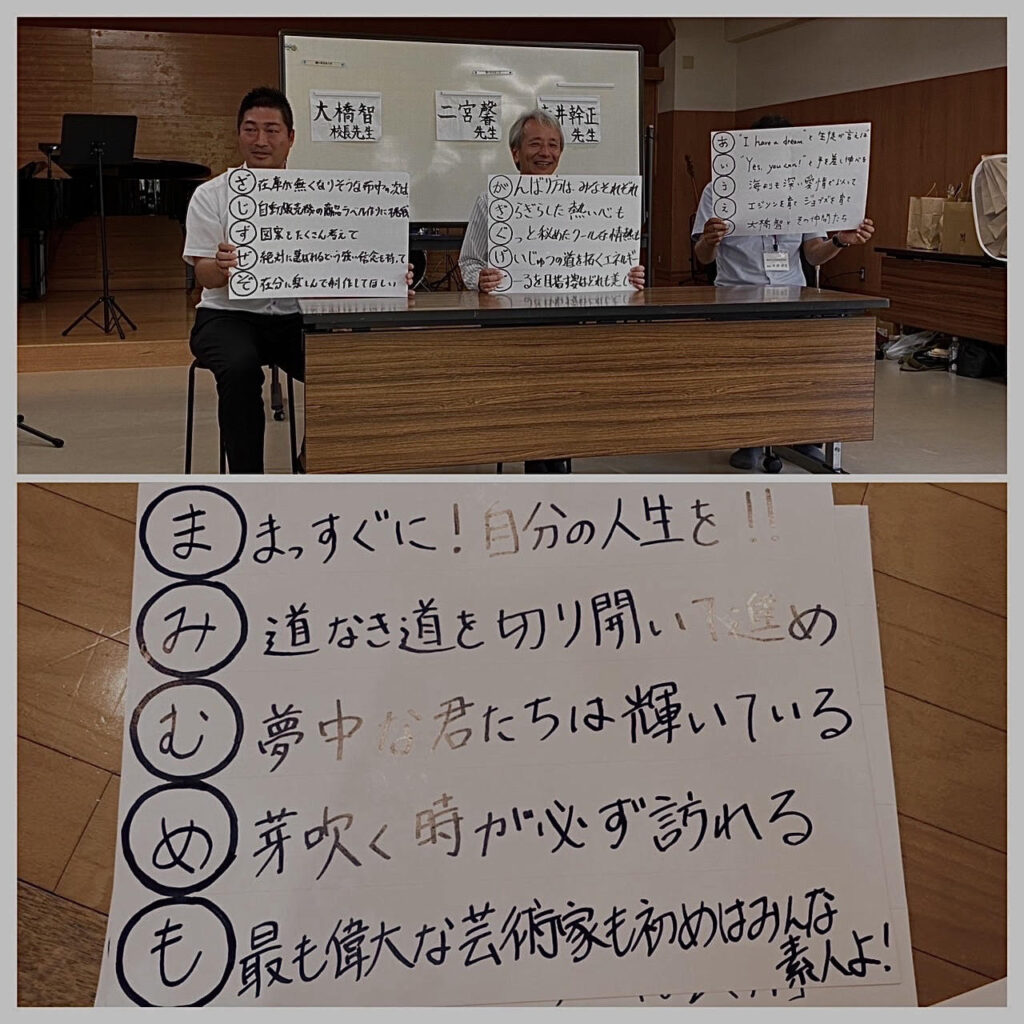 大橋智
校長先生
二宮馨
先生
井幹正
先生
ざ 在庫が無くなりそうな
じ 自動販売機の商品ラベル作りに挑戦
ず 図案をたくさん考えて
ぜ 絶対に選ばれるという強い信念を持って
ぞ 存分に楽しんで制作してほしい
が んばり方は、みなそれぞれ
ぎ らぎらした熱い心も
ぐ っと秘めたクールな情熱も
げ いじゅつの道を拓くエネルギ
ご ーるを目指す姿はどれも美し
あ "I have a dream"と生徒が言えば
い "Yes, you can!"と手を差し伸べる
う 海よりも深い愛情でもって
え エジソンを育て ジョブズを育て
大橋智とその仲間たち
ま まっすぐに!自分の人生を!!
み 道なき道を切り開いて進め
む 夢中な君たちは輝いている
め 芽吹く時が必ず訪れる
も 最も偉大な芸術家も初めはみんな
素人よ!